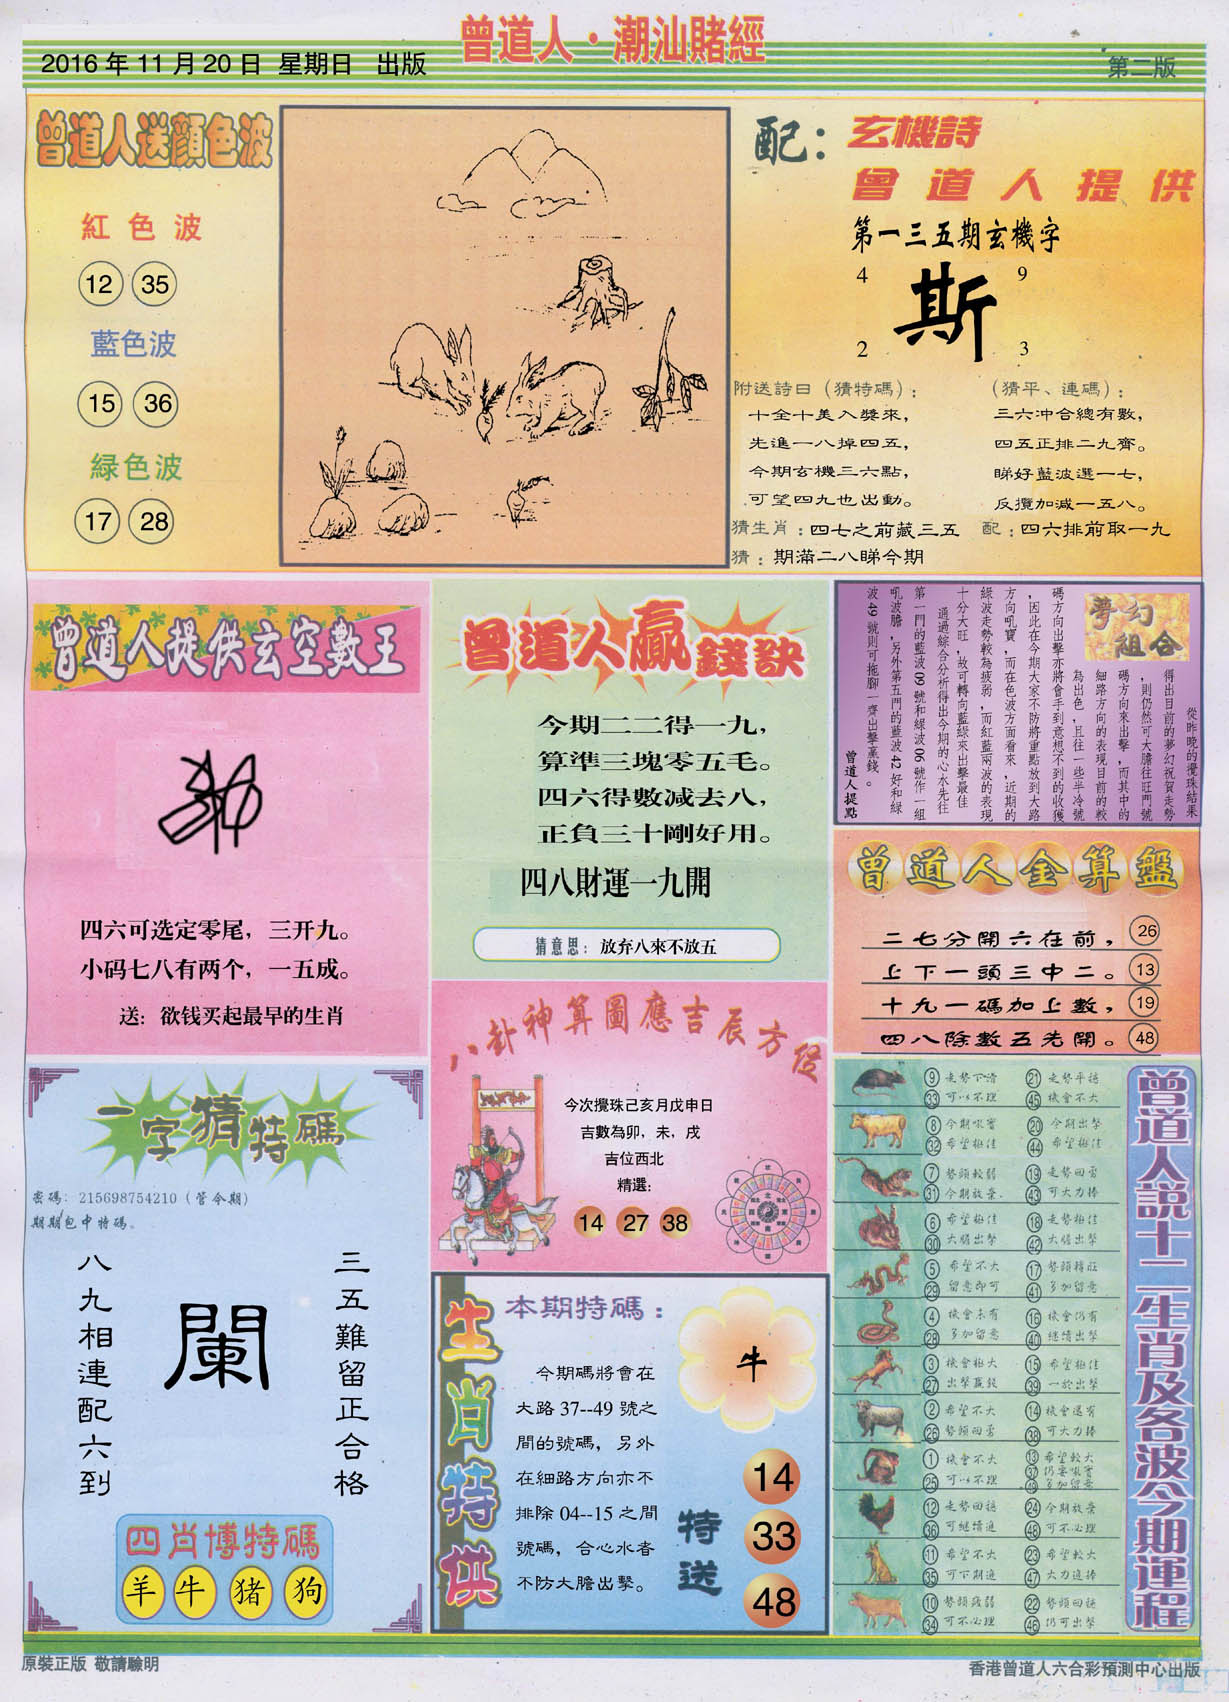 曾道人·潮汕賭經
2016年11月20日 星期日 出版
第二版
曾道人送顏色波
紅色波
12 35
藍色波
15 36
緑色波
17 28
配：玄機詩
曾道人提供
第一三五期玄機字
4 9
斯
2 3
附送詩曰（猜特碼）：
十全十美入獎來，
先進一八掉四五，
今期玄機三六點，
可望四九也出動。
（猜平、連碼）：
三六冲合總有數，
四五正排二九齊。
睇好藍波選一七，
反攬加減一五八。
猜生肖：四七之前藏三五
配：四六排前取一九
猜：期滿二八睇今期
曾道人提供玄空數王
四六可选定零尾，三开九。
小码七八有两个，一五成。
送：欲钱买起最早的生肖
曾道人贏錢訣
今期二二得一九，
算準三塊零五毛。
四六得數減去八，
正負三十剛好用。
四八財運一九開
猜意思：放弃八來不放五
夢幻組合
從昨晚的攪珠結果
得出目前的夢幻祝賀走勢
，則仍然可大膽往旺門號
碼方向來出擊，而其中的
細路方向的表現目前的較
為出色，且往一些半冷號
碼方向出擊亦將會手到意想不到的收獲
，因此在今期大家不防將重點放到大路
方向吼寶，而在色波方面看來，近期的
綠波走勢較為疲弱，而紅藍兩波的表現
十分大旺，故可轉向藍綠來出擊最佳
通過綜合分析得出今期的心水先往
第一門的藍波09號和綠波06號作一組
吼波膽，另外第五門的藍波42好和綠
波49號則可拖腳一齊出擊贏錢。
曾道人提點
曾道人金算盤
二七分開六在前， 26
上下一頭三中二。 13
十九一碼加上數， 19
四八除數五先開。 48
八卦神算圖應吉辰方位
今次攪珠己亥月戊申日
吉數為卯，未，戌
吉位西北
精選：
14 27 38
一字猜特碼
密碼：215698754210（管令期）
期期包中特碼。
三五難留正合格
闌
八九相連配六到
四肖博特碼
羊 牛 猪 狗
生肖特供
本期特碼：
今期碼將會在
大路37--49號之
間的號碼，另外
在細路方向亦不
排除04--15之間
號碼，合心水者
不防大膽出擊。
牛
特送
14
33
48
曾道人説十二生肖及各波今期運程
9 走勢下滑 21 走勢平穩
33 可以不理 45 機會不大
8 今期吼實 20 今期出擊
32 希望極佳 44 希望極佳
7 勢頭較弱 19 走勢回勇
31 今期放棄 43 可大力捧
6 希望極佳 18 走勢極佳
30 大膽出擊 42 大膽出擊
5 希望不大 17 勢頭轉旺
29 留意即可 41 多加留意
4 機會未有 16 機會仍有
28 多加留意 40 繼續出擊
3 機會極大 15 希望極佳
27 出擊贏錢 39 一於出擊
2 希望不大 14 機會還有
26 勢頭回勇 38 可大力捧
1 機會不大 13 希望較大
25 可以不理 37 仍要吼實
49 多加留意
12 走勢回穩 24 今期放棄
36 可繼續追 48 可不必理
11 希望不大 23 希望較大
35 可下期追 47 大力追捧
10 勢頭疲弱 22 勢頭回穩
34 可不必理 46 仍可出擊
原裝正版 敬請驗明
香港曾道人六合彩預測中心出版